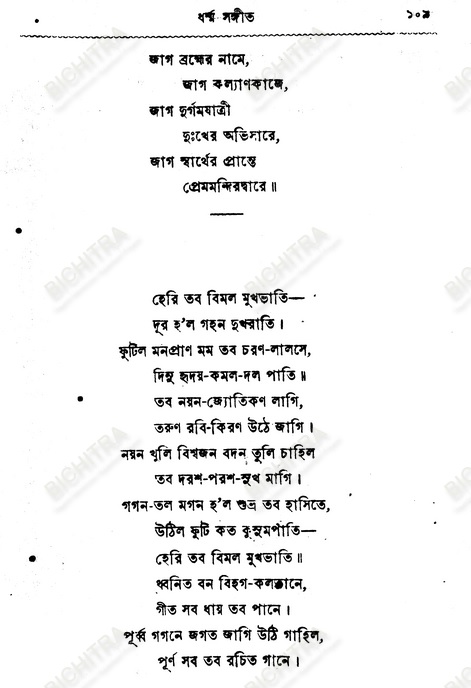 ধর্ম্ম সঙ্গীত ১০৯
জাগ ব্রহ্মের নামে,
জাগ কল্যাণকাজে,
জাগ দুর্গমযাত্রী
দুঃখের অভিসারে,
জাগ স্বার্থের প্রান্তে
প্রেমমন্দিরদ্বারে॥
হেরি তব বিমল মুখভাতি—
দূর হ'ল গহন দুখরাতি।
ফুটিল মনপ্রাণ মম তব চরণ-লালসে,
দিনু হৃদয়-কমল-দল পাতি॥
তব নয়ন-জ্যোতিকণ লাগি,
তরুণ রবি-কিরণ উঠে জাগি।
নয়ন খুলি বিশ্বজন বদন তুলি চাহিল
তব দরশ-পরশ-সুখ মাগি।
গগন-তল মগন হ'ল শুভ্র তব হাসিতে,
উঠিল ফুটি কত কুসুমপাতি—
হেরি তব বিমল মুখভাতি॥
ধ্বনিত বন বিহগ-কলতানে,
গীত সব ধায় তব পানে।
পূর্ব্ব গগনে জগত জাগি উঠি গাহিল,
পূর্ণ সব তব রচিত গানে।
BICHITRA
BICHITRA
BICHITRA
BICHITRA
BICHITRA
BICHITRA
BICHITRA
BICHITRA